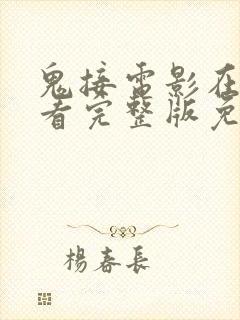 鬼接雷影在
看完整版免
楊春長